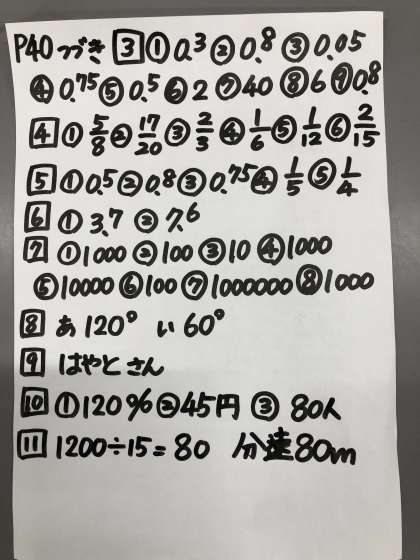 P40 つづき 3 ① 0.3 ② 0.8 ③ 0.05
④ 0.75 ⑤ 0.5 ⑥ 2 ⑦ 40 ⑧ 6 ⑨ 0.8
4 ① 5/8 ② 17/20 ③ 2/3 ④ 1/6 ⑤ 1/12 ⑥ 2/15
5 ① 0.5 ② 0.8 ③ 0.75 ④ 1/5 ⑤ 1/4
6 ① 3.7 ② 7.6
7 ① 1000 ② 100 ③ 10 ④ 1000
⑤ 10000 ⑥ 100 ⑦ 1000000 ⑧ 1000
8 あ 120° い 60°
9 はやとさん
10 ① 120% ② 45円 ③ 80人
11 1200÷15=80 分速80m